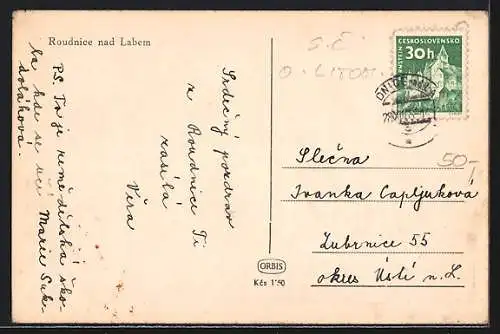 Roudnice nad Labem
P.S. To je zemědělská ško-
la kde se učí Marie Suk-
doláková.
Srdečný pozdrav
z Roudnice Ti
zasílá
Věra
ORBIS
Kčs 1'50
S.Č.
O. LITOM.
ČESKOSLOVENSKO
30h
50,-
Slečna
Ivanka Capljuková
Zubrnice 55
okres Ústí n. L.